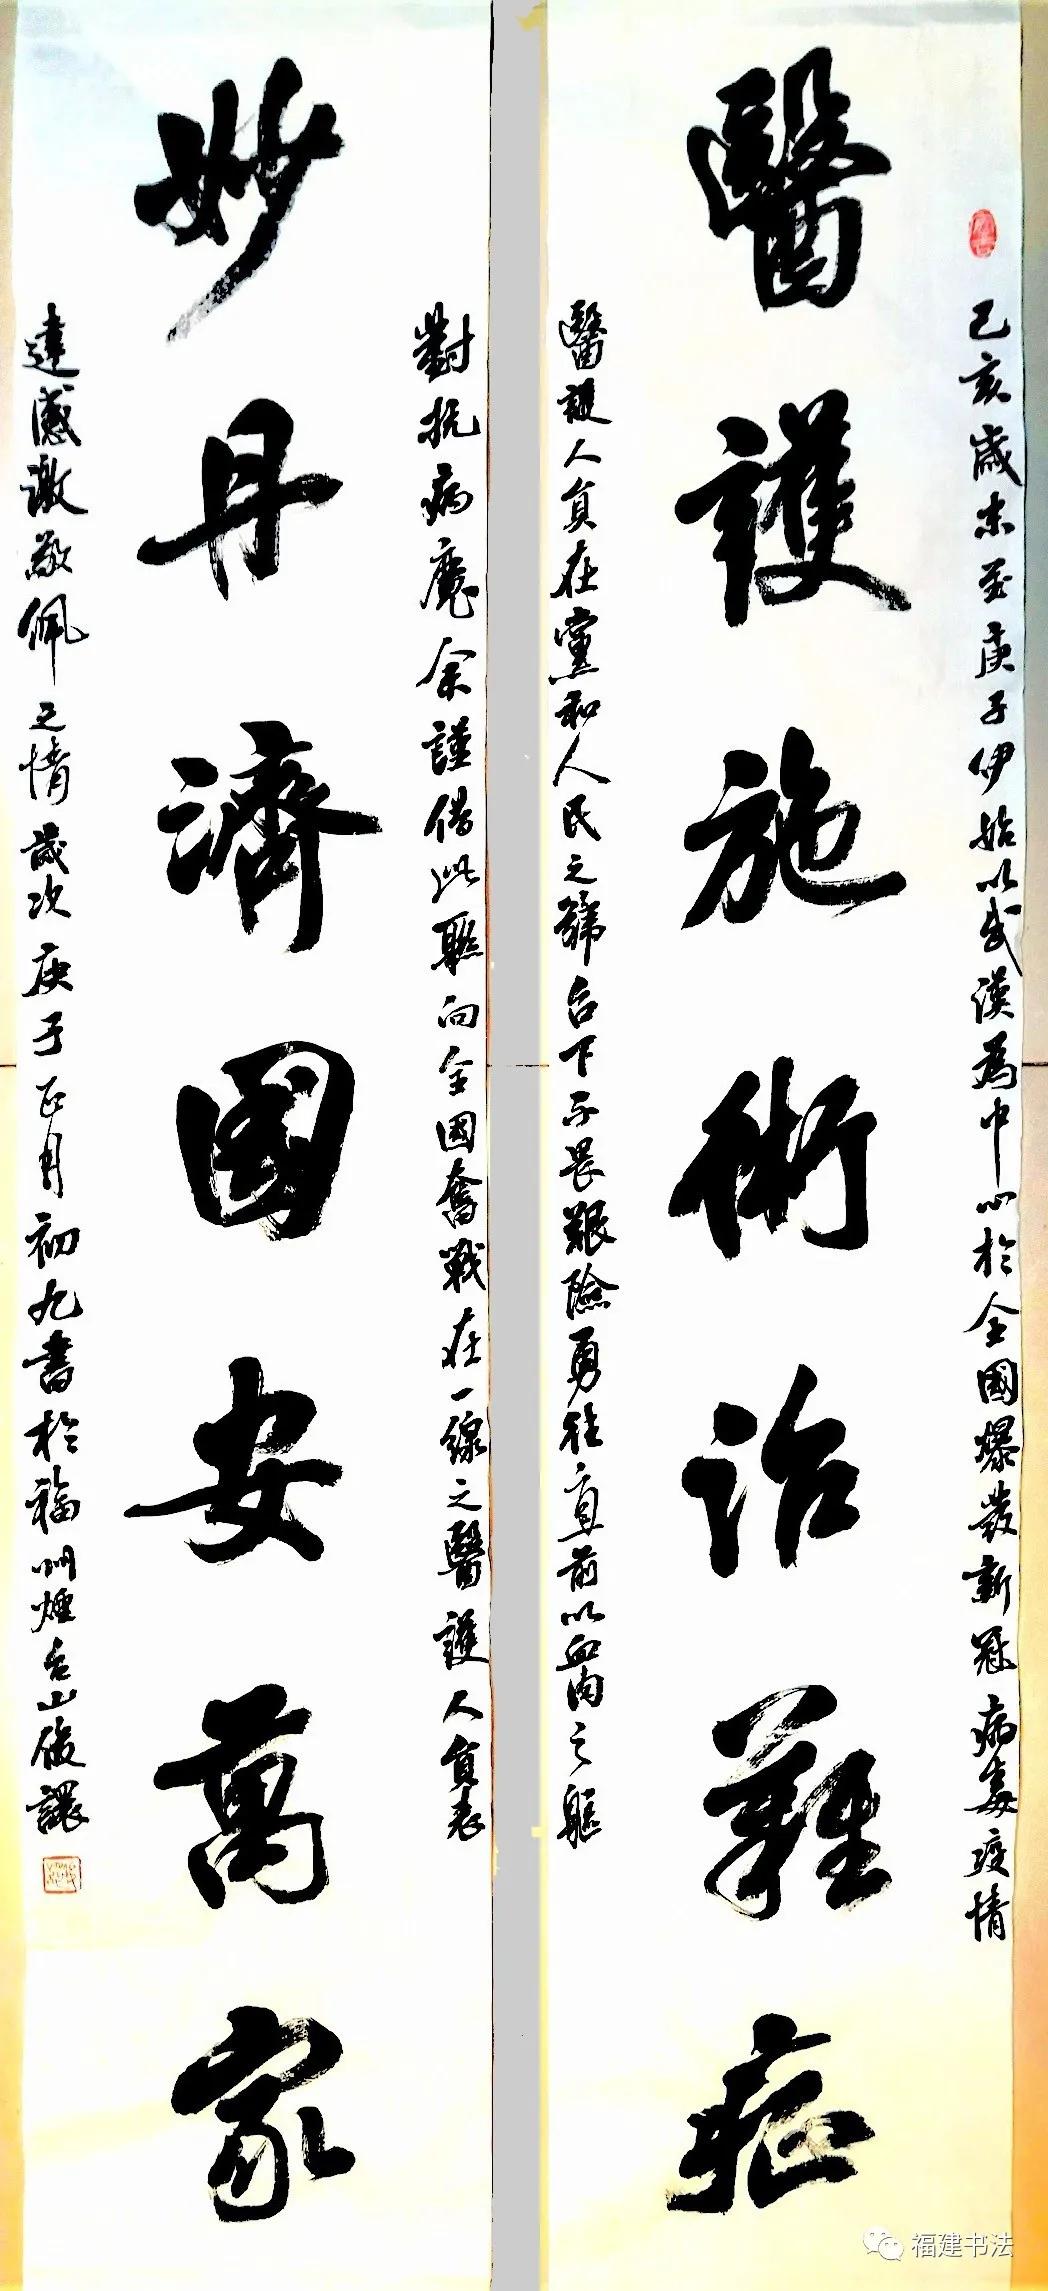 己亥歲末至庚子伊始以武漢為中心於全國爆發新冠病毒疫情
醫護施術治難症
醫護人員在黨和人民之號召下不畏艱險勇往直前以血肉之軀
對抗病魔余謹借此聯向全國奮戰在一線之醫護人員表
妙丹濟國安萬家
達感激敬佩之情歲次庚子正月初九書於福州煙台山俊讓
福建书法